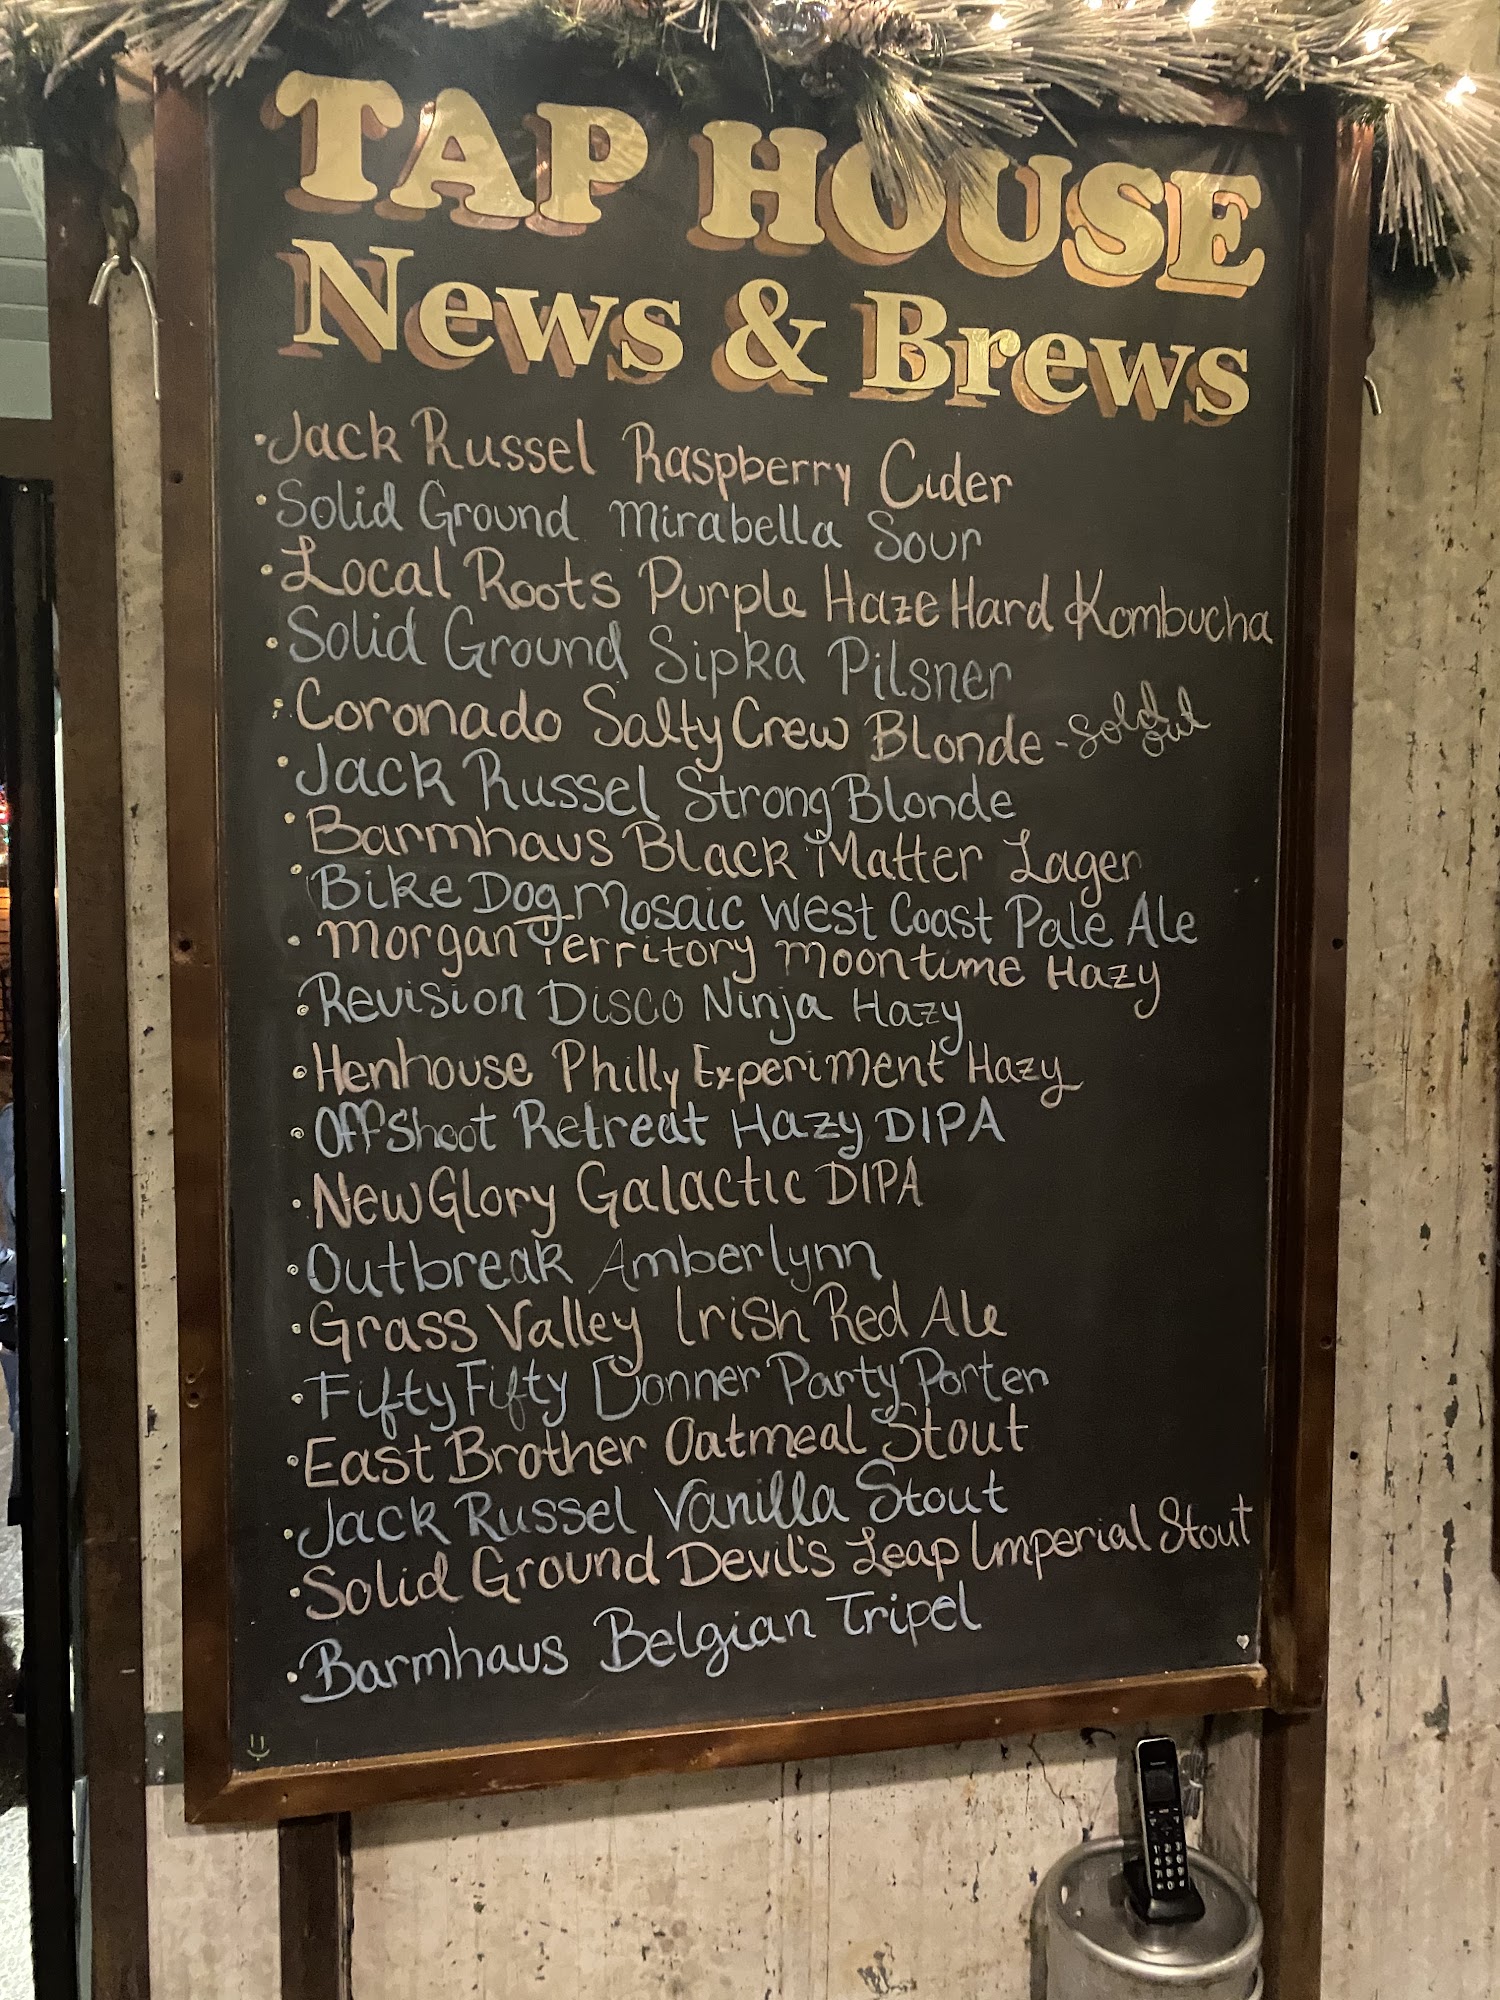 TAP HOUSE
News & Brews
• Jack Russel Raspberry Cider
• Solid Ground Mirabella Sour
• Local Roots Purple Haze Hard Kombucha
• Solid Ground Sipka Pilsner
• Coronado Salty Crew Blonde - Sold out
• Jack Russel Strong Blonde
• Barmhaus Black Matter Lager
• Bike Dog Mosaic West Coast Pale Ale
• Morgan Territory Moontime Hazy
• Revision Disco Ninja Hazy
• Henhouse Philly Experiment Hazy
• Offshoot Retreat Hazy DIPA
• New Glory Galactic DIPA
• Outbreak Amberlynn
• Grass Valley Irish Red Ale
• FiftyFifty Donner Party Porter
• East Brother Oatmeal Stout
• Jack Russel Vanilla Stout
• Solid Ground Devil's Leap Imperial Stout
• Barmhaus Belgian Tripel